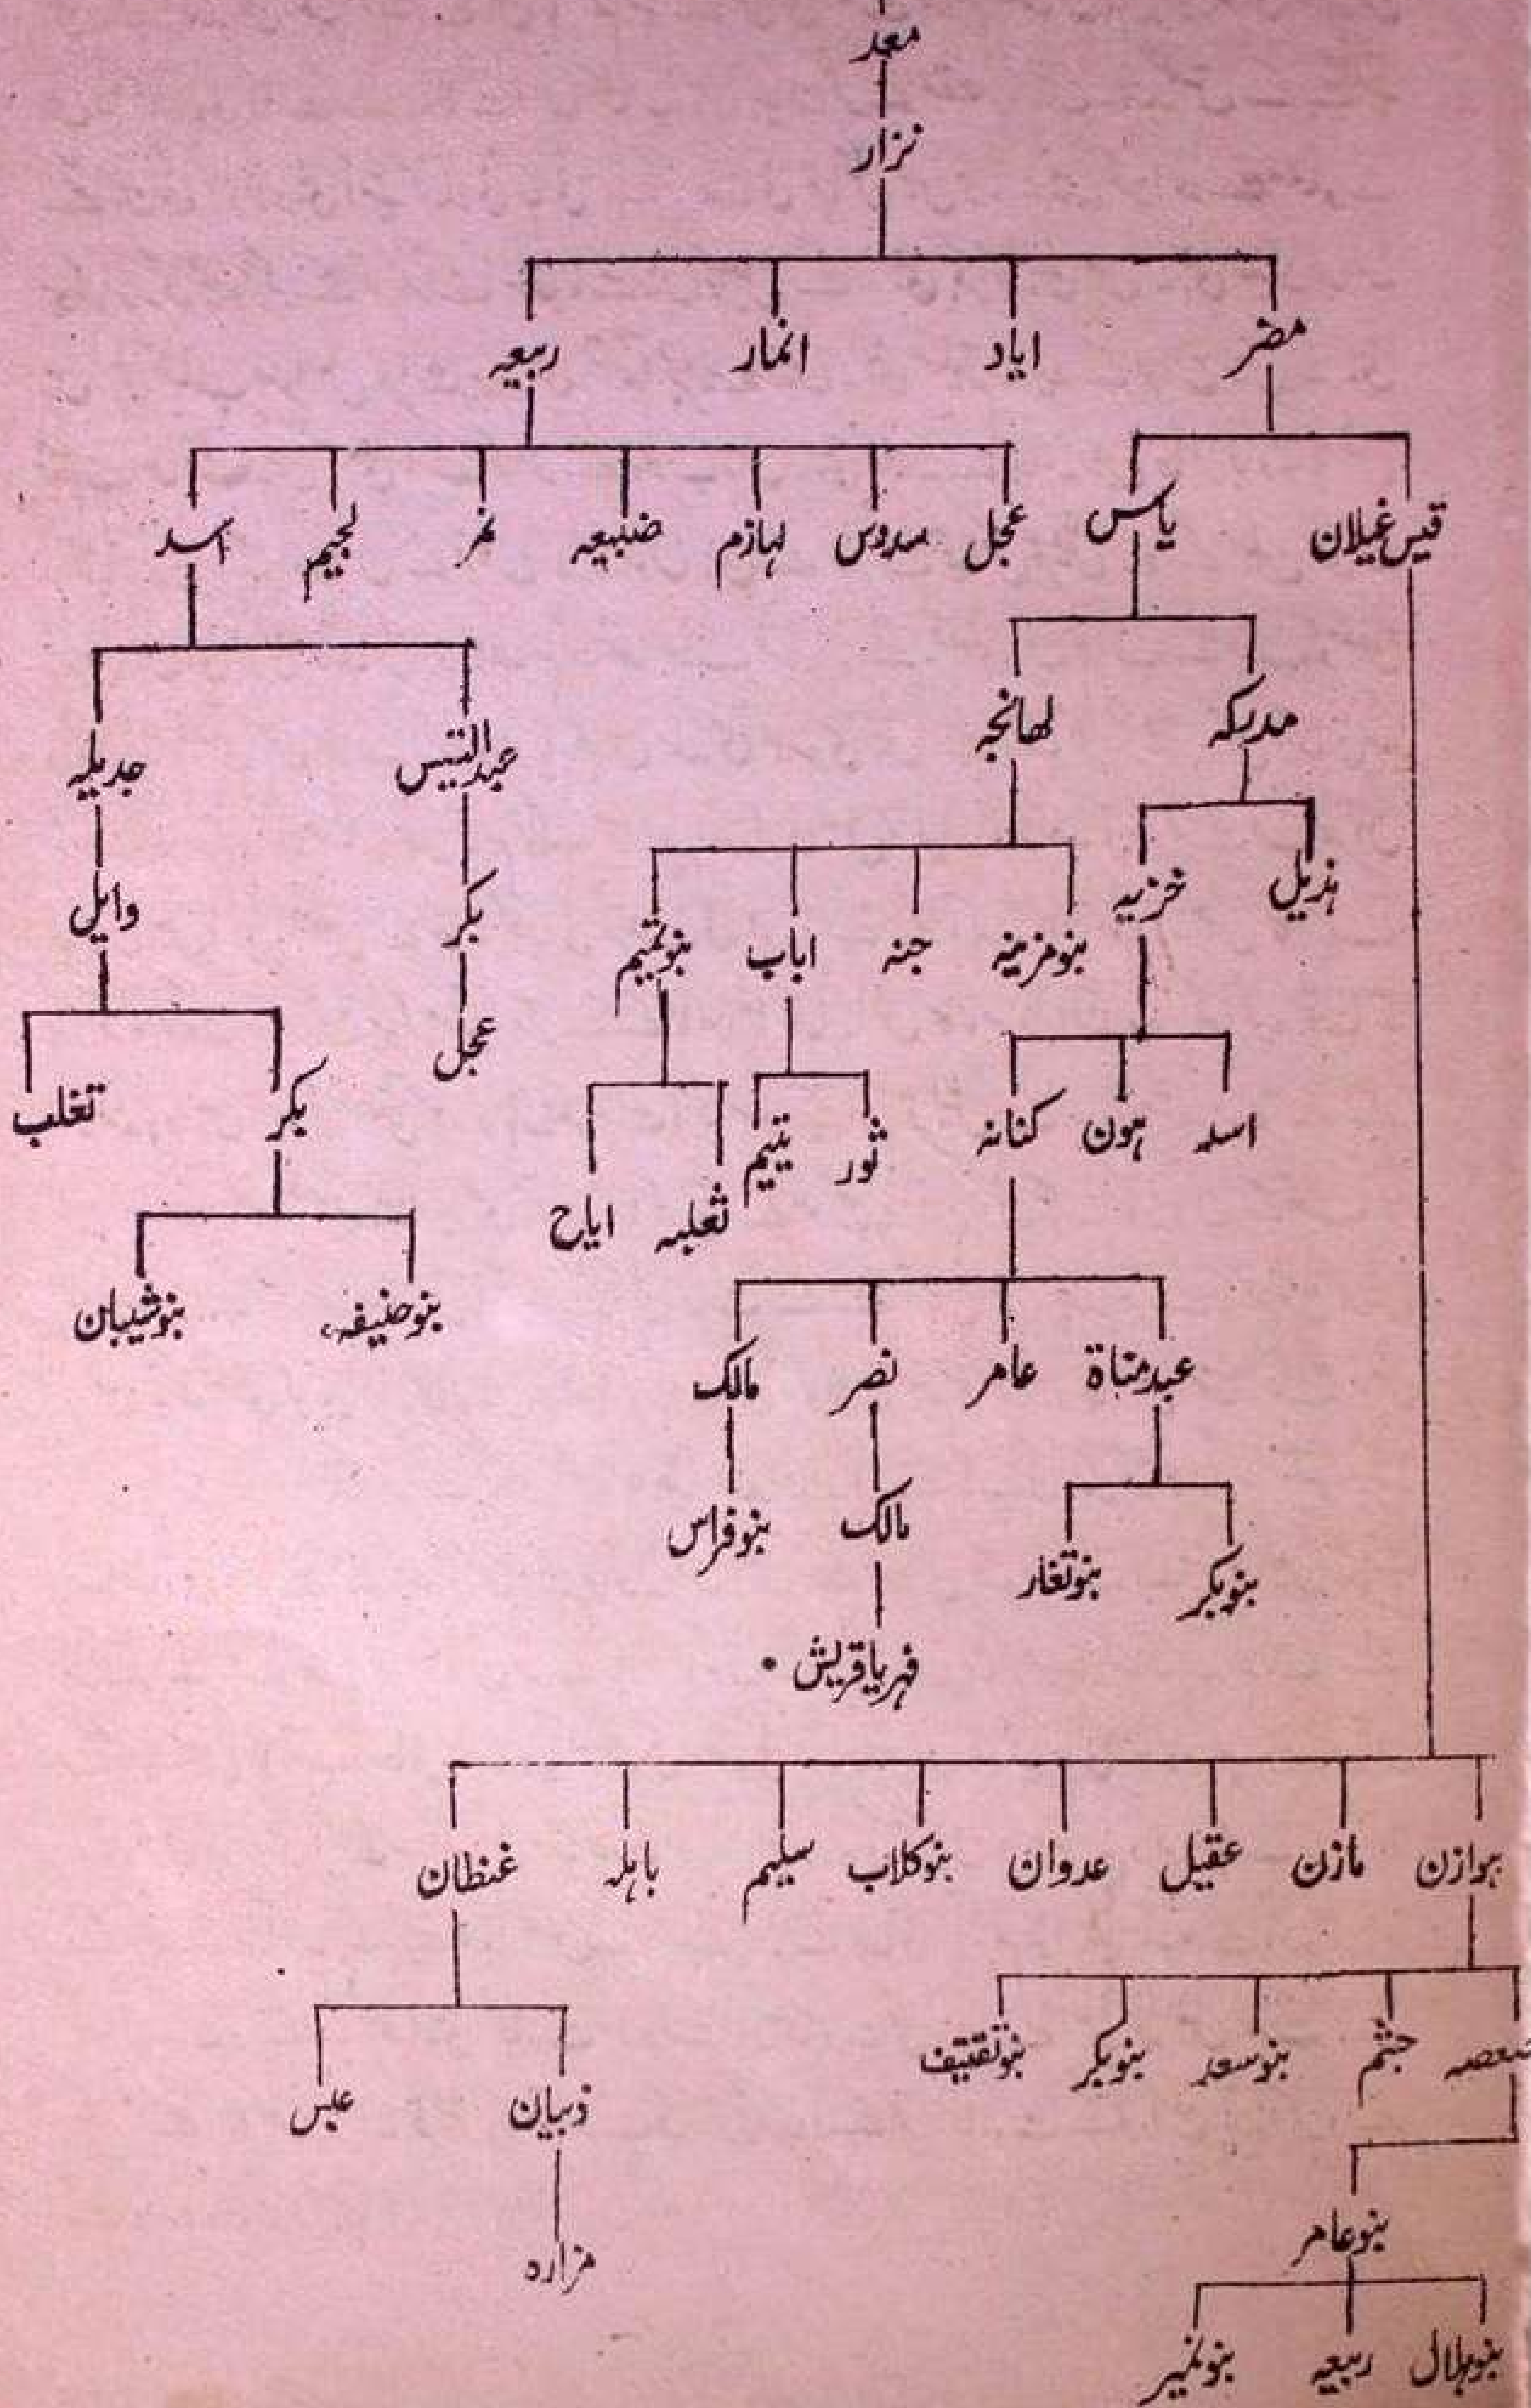 معد
نزار
مضر ایاد انمار ربیعہ
قیس غیلان یاس عجل سدوس لہازم ضبیعہ نمر لجیم اسد
مدرکہ لھانجہ عبدالقیس جدیلہ
ہذیل خزیمہ بنومزینہ جنہ اباب بنوتمیم بکر وایل
اسد ہون کنانہ ثور تیم ثعلبہ ایاح عجل بکر تغلب
بنوحنیفہ بنوشیبان
عبدمناة عامر نصر مالک
بنوبکر بنوتغار مالک بنوفراس
فہر یا قریش
ہوازن مازن عقیل عدوان بنوکلاب سلیم باہلہ غنطان
جثم بنوسعد بنوبکر بنوثقیف ذبیان عبس
بنوعامر مزارہ
بنوہلال ربیعہ بنونمیر